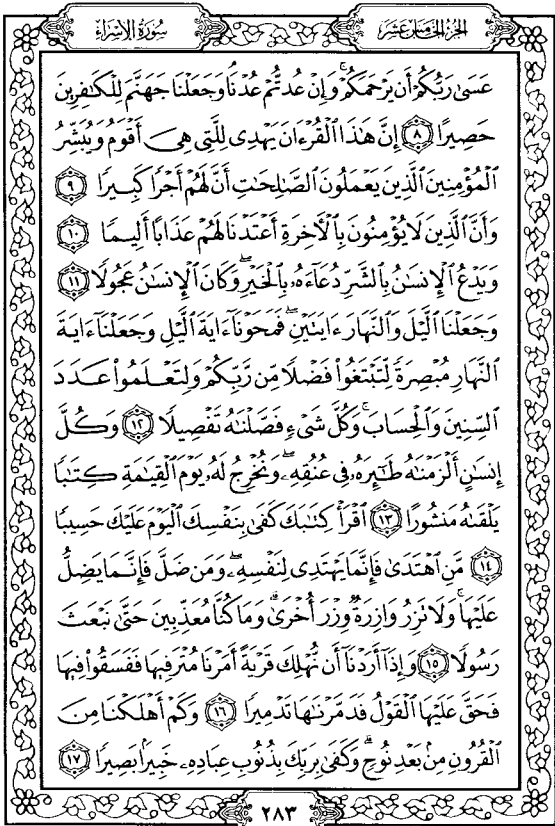 سُورَةُ الإِسْرَاءِ
الجُزْءُ الخَامِسَ عَشَرَ
عَسَىٰ رَبُّكُمْ أَن يَرْحَمَكُمْ ۚ وَإِنْ عُدتُّمْ عُدْنَا ۘ وَجَعَلْنَا جَهَنَّمَ لِلْكَـٰفِرِينَ
حَصِيرًا ٨ إِنَّ هَـٰذَا ٱلْقُرْءَانَ يَهْدِى لِلَّتِى هِىَ أَقْوَمُ وَيُبَشِّرُ
ٱلْمُؤْمِنِينَ ٱلَّذِينَ يَعْمَلُونَ ٱلصَّـٰلِحَـٰتِ أَنَّ لَهُمْ أَجْرًا كَبِيرًا ٩
وَأَنَّ ٱلَّذِينَ لَا يُؤْمِنُونَ بِٱلْـَٔاخِرَةِ أَعْتَدْنَا لَهُمْ عَذَابًا أَلِيمًا ١٠
وَيَدْعُ ٱلْإِنسَـٰنُ بِٱلشَّرِّ دُعَآءَهُۥ بِٱلْخَيْرِ ۖ وَكَانَ ٱلْإِنسَـٰنُ عَجُولًا ١١
وَجَعَلْنَا ٱلَّيْلَ وَٱلنَّهَارَ ءَايَتَيْنِ ۖ فَمَحَوْنَآ ءَايَةَ ٱلَّيْلِ وَجَعَلْنَآ ءَايَةَ
ٱلنَّهَارِ مُبْصِرَةً لِّتَبْتَغُوا۟ فَضْلًا مِّن رَّبِّكُمْ وَلِتَعْلَمُوا۟ عَدَدَ
ٱلسِّنِينَ وَٱلْحِسَابَ ۚ وَكُلَّ شَىْءٍ فَصَّلْنَـٰهُ تَفْصِيلًا ١٢ وَكُلَّ
إِنسَـٰنٍ أَلْزَمْنَـٰهُ طَـٰٓئِرَهُۥ فِى عُنُقِهِۦ ۖ وَنُخْرِجُ لَهُۥ يَوْمَ ٱلْقِيَـٰمَةِ كِتَـٰبًا
يَلْقَىٰهُ مَنشُورًا ١٣ ٱقْرَأْ كِتَـٰبَكَ كَفَىٰ بِنَفْسِكَ ٱلْيَوْمَ عَلَيْكَ حَسِيبًا
١٤ مَّنِ ٱهْتَدَىٰ فَإِنَّمَا يَهْتَدِى لِنَفْسِهِۦ ۖ وَمَن ضَلَّ فَإِنَّمَا يَضِلُّ
عَلَيْهَا ۚ وَلَا تَزِرُ وَازِرَةٌ وِزْرَ أُخْرَىٰ ۗ وَمَا كُنَّا مُعَذِّبِينَ حَتَّىٰ نَبْعَثَ
رَسُولًا ١٥ وَإِذَآ أَرَدْنَآ أَن نُّهْلِكَ قَرْيَةً أَمَرْنَا مُتْرَفِيهَا فَفَسَقُوا۟ فِيهَا
فَحَقَّ عَلَيْهَا ٱلْقَوْلُ فَدَمَّرْنَـٰهَا تَدْمِيرًا ١٦ وَكَمْ أَهْلَكْنَا مِنَ
ٱلْقُرُونِ مِنۢ بَعْدِ نُوحٍ ۗ وَكَفَىٰ بِرَبِّكَ بِذُنُوبِ عِبَادِهِۦ خَبِيرًۢا بَصِيرًا ١٧
٢٨٣